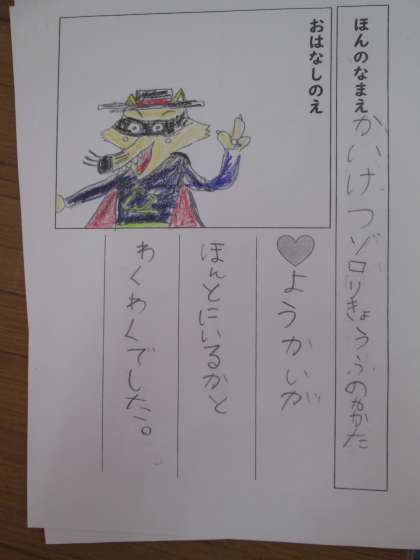 ほんのなまえ かいけつゾロリきょうふのかた
おはなしのえ
ようかいが
ほんとにいるかと
わくわくでした。